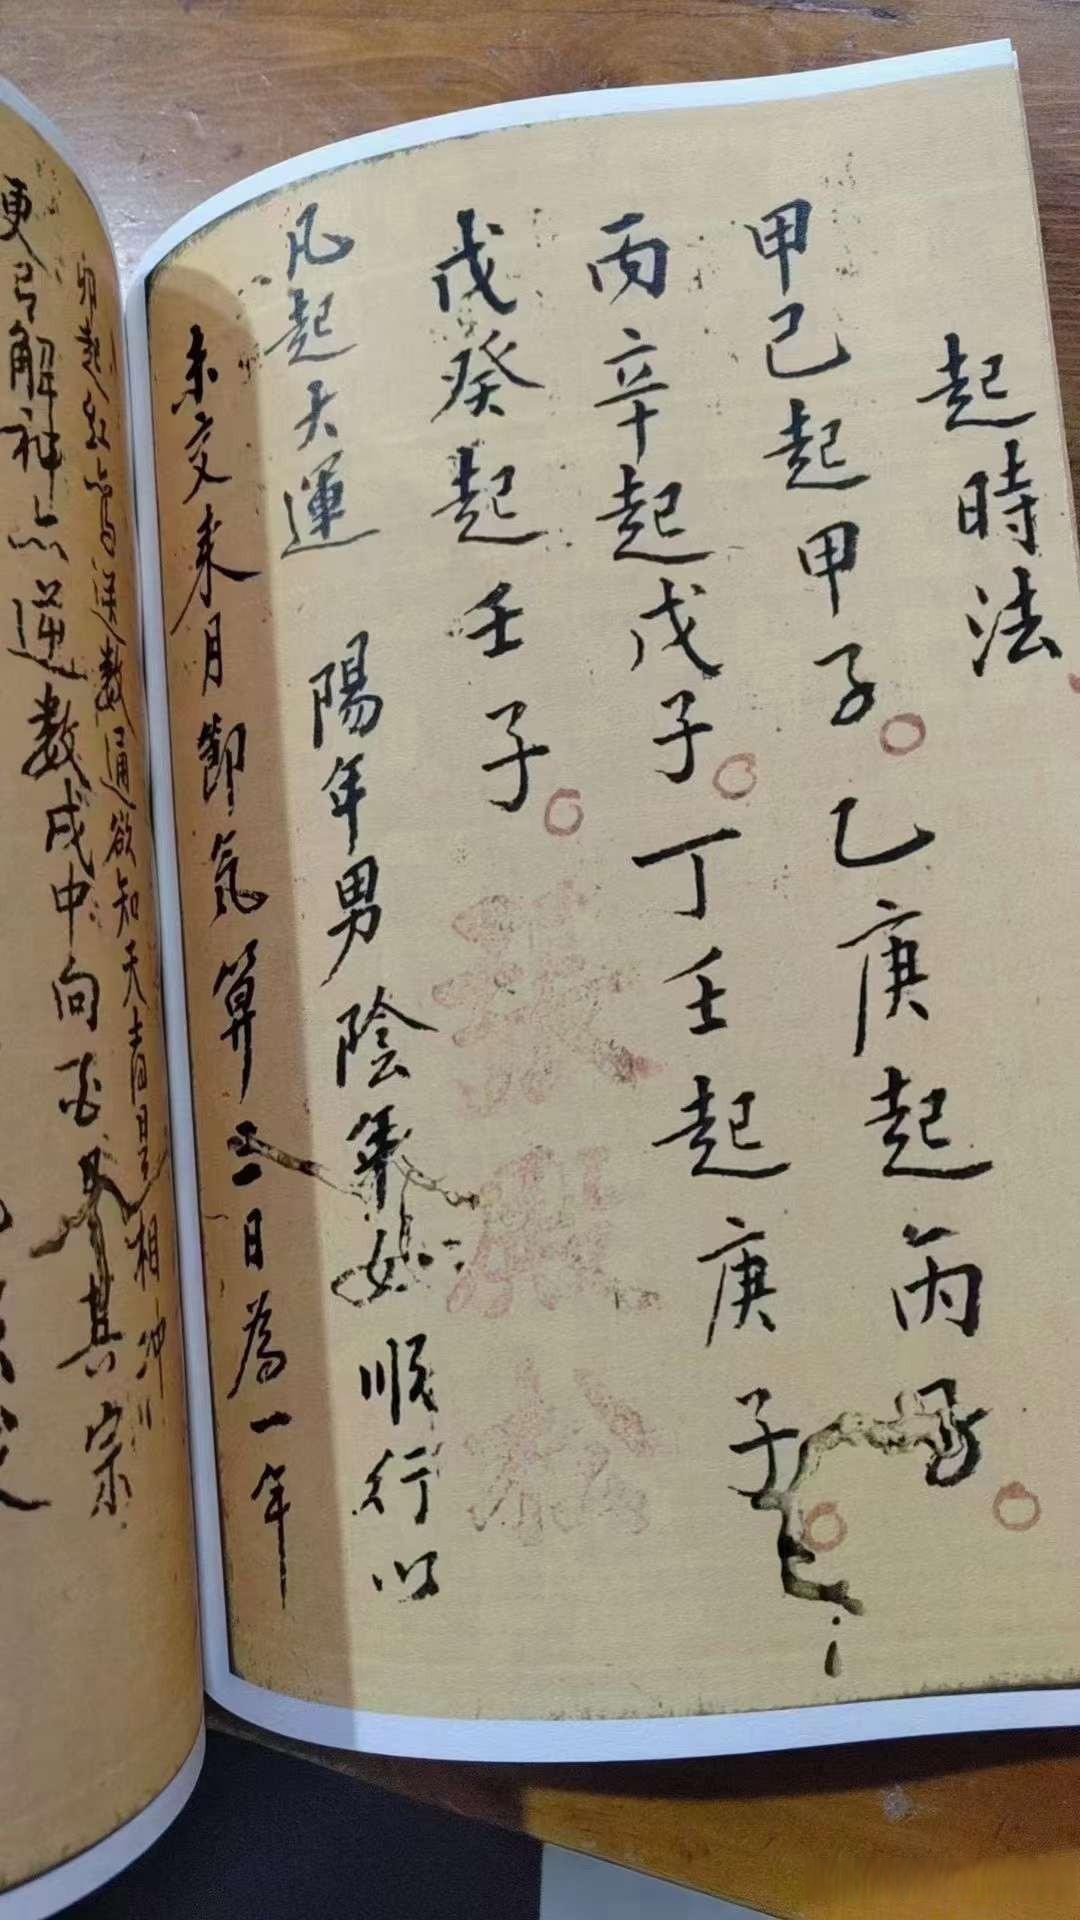 起時法
甲己起甲子。乙庚起丙子。
丙辛起戊子。丁壬起庚子。
戊癸起壬子。
凡起大運　陽年男陰年女順行以
未交来月節気算三日為一年
卯起紅鸞逆数通欲知天喜是相冲
更解神亦逆数戌中向其宗